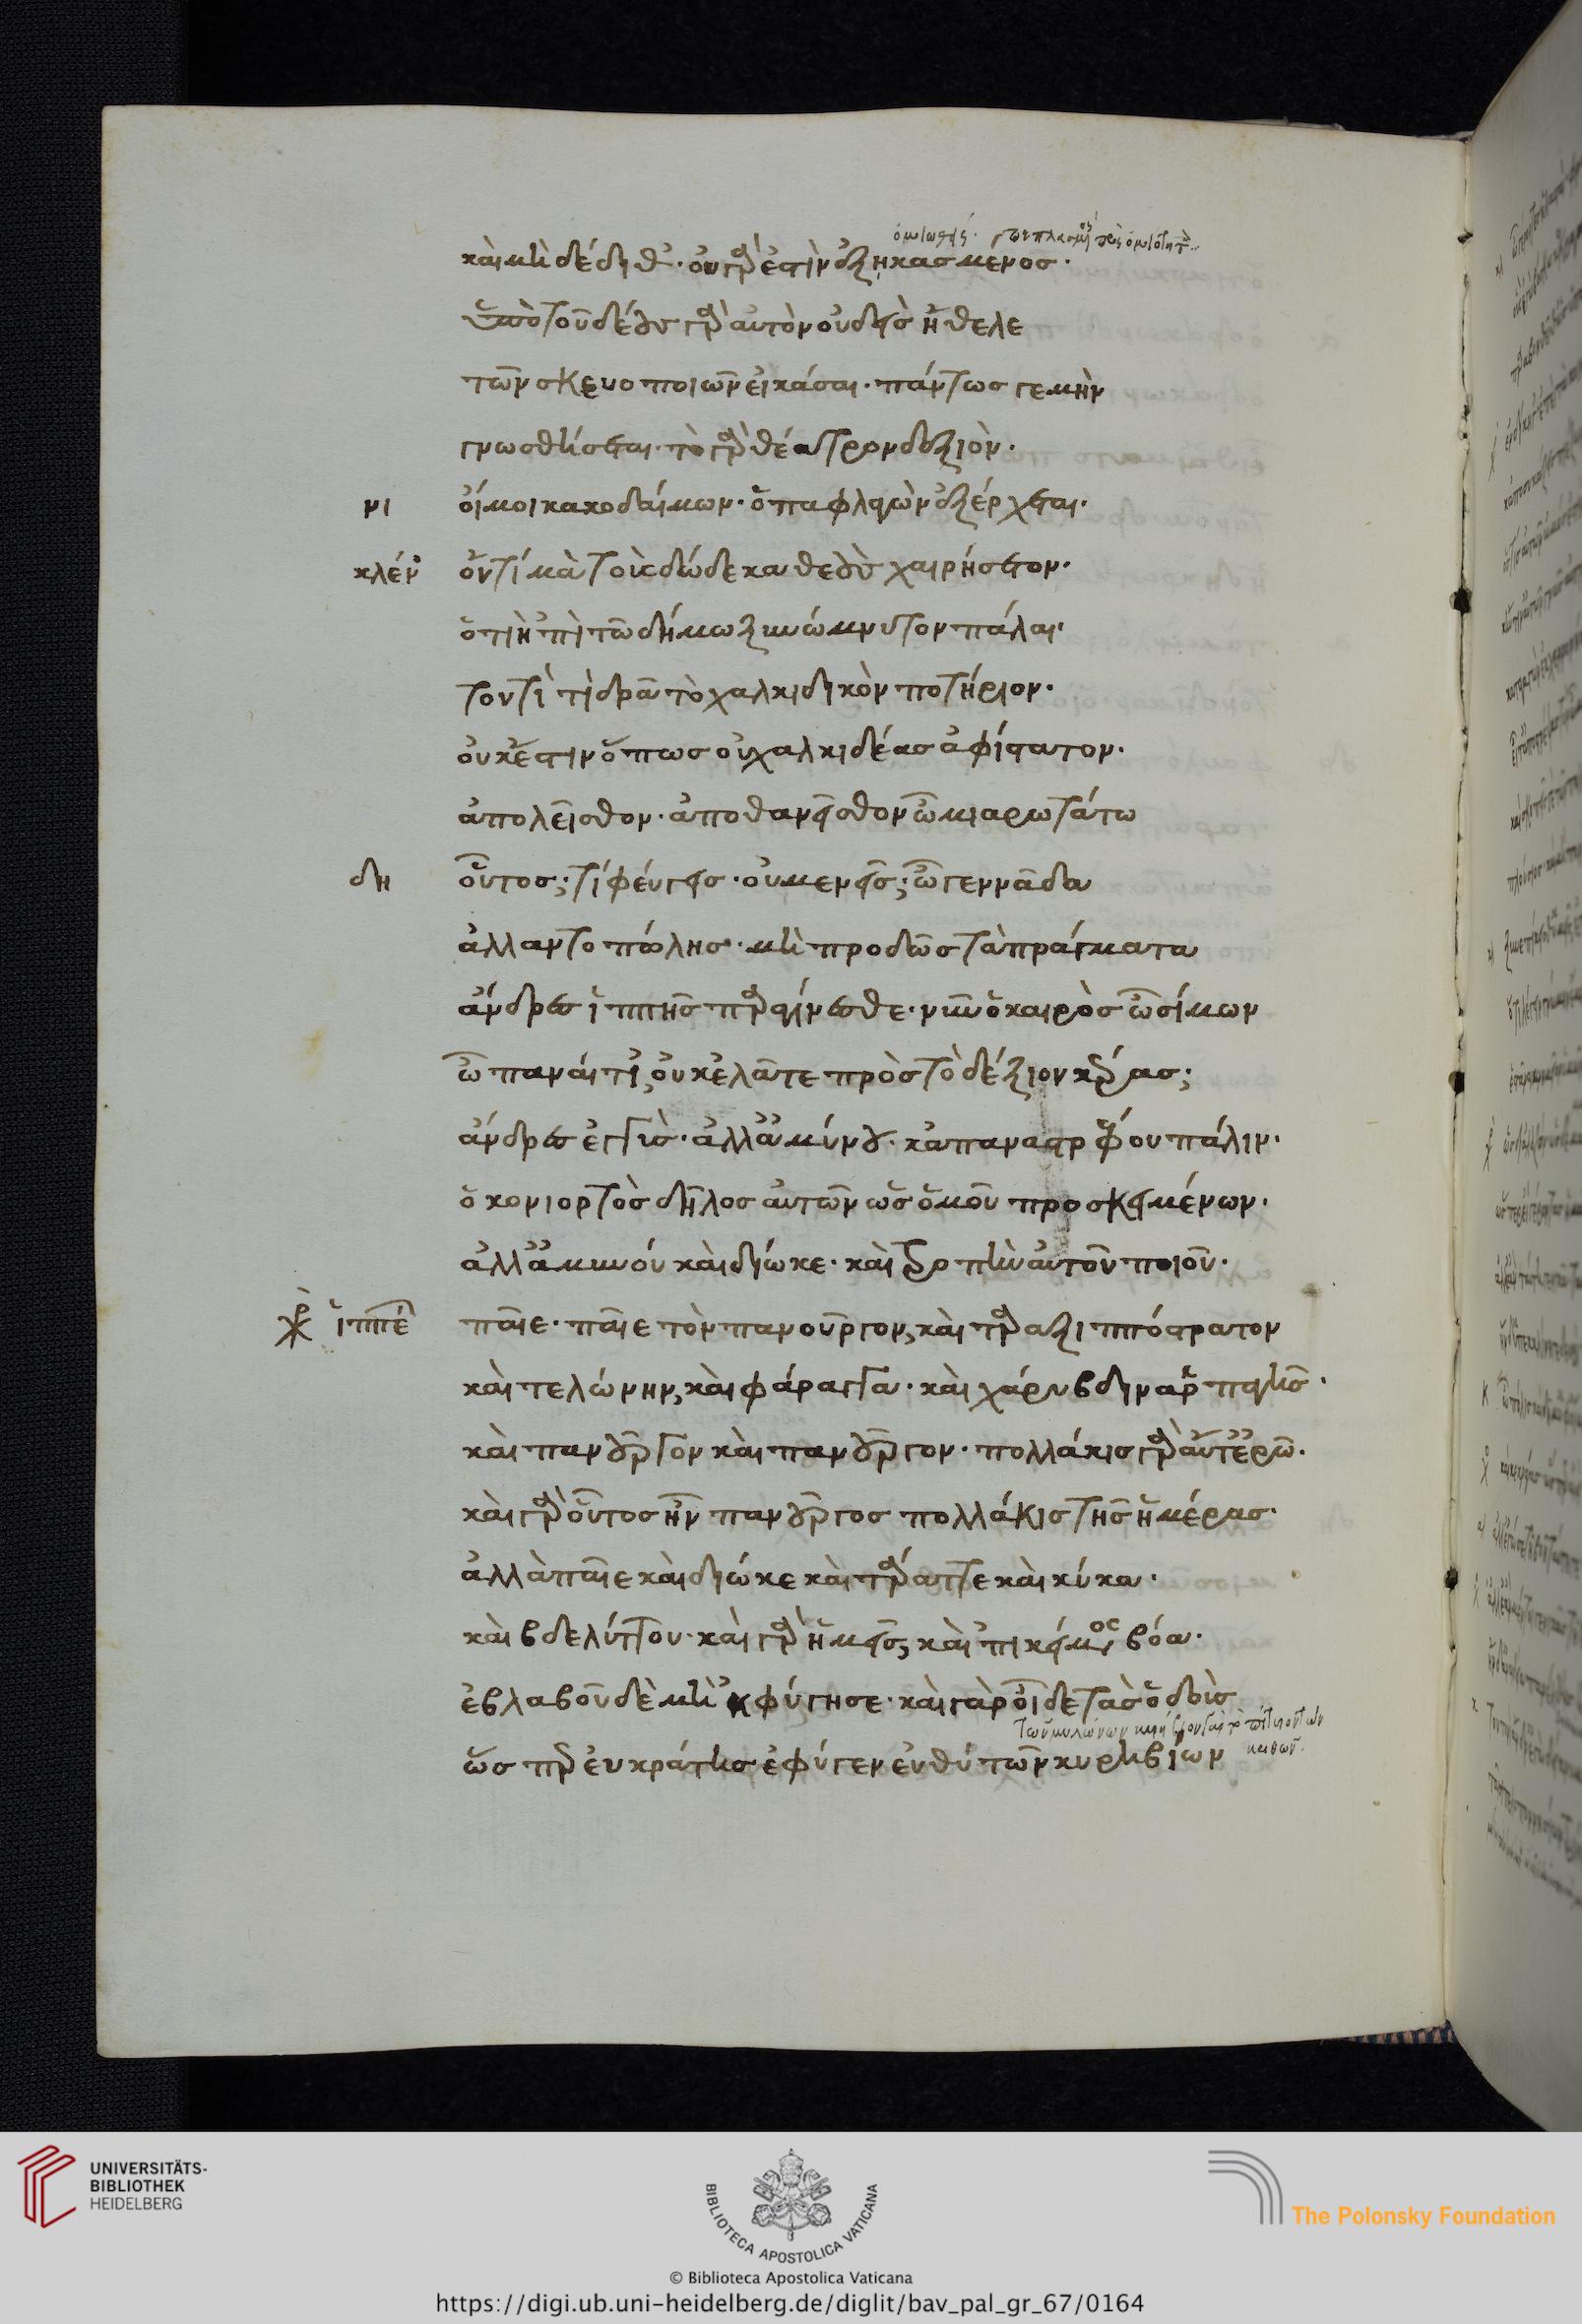 καὶ μὴ δέδιθ'. οὐ γάρ ἐστιν ἐξηκασμένος.
ὑπὸ τοῦ δέους γὰρ αὐτὸν οὐδεὶς ἤθελε
τῶν σκευοποιῶν εἰκάσαι. πάντως γε μὴν
γνωσθήσεται. τὸ γὰρ θέατρον δεξιόν.
νι οἴμοι κακοδαίμων. ὁ παφλαγὼν ἐξέρχεται.
κλέων οὔτι μὰ τοὺς δώδεκα θεοὺς χαιρήσετον.
ὁτιὴ 'πὶ τῶ δήμω ξυνώμνυτον πάλαι.
τουτὶ τί δρᾶ τὸ χαλκιδικὸν ποτήριον.
οὐκ ἔστιν ὅπως οὐ χαλκιδέας ἀφίστατον.
ἀπολεῖσθον. ἀποθανεῖσθον ὦ μιαρωτάτω
δη οὗτος; τί φεύγεις. οὐ μενεῖς; ὦ γεννάδα
ἀλλαντοπῶλης. μὴ προδῶς τὰ πράγματα
ἄνδρες ἱππῆς παραγίνεσθε. νῦν ὁ καιρὸς ὦ σίμων
ὦ παναίτι', οὐκ ἐλᾶτε πρὸς τὸ δέξιον κέρας;
ἄνδρες ἐγγύς. ἀλλ' ἀμύνου. κἀπαναστρέφου πάλιν.
ὁ κονιορτὸς δῆλος αὐτῶν ὡς ὁμοῦ προσκειμένων.
ἀλλ' ἀμύνου καὶ δίωκε. καὶ τροπὴν αὐτοῦ ποιοῦ.
χρ ἱππέ παῖε. παῖε τὸν πανοῦργον, καὶ ταραξιππόστρατον
καὶ τελώνην, καὶ φάραγγα. καὶ χάρυβδιν ἁρπαγῆς.
καὶ πανοῦργον καὶ πανοῦργον. πολλάκις γὰρ αὔτ' ἐρῶ.
καὶ γὰρ οὗτος ἦν πανοῦργος πολλάκις τῆς ἡμέρας.
ἀλλὰ παῖε καὶ δίωκε καὶ τάραττε καὶ κύκα.
καὶ βδελύττου. καὶ γὰρ ἡμεῖς, κἀπικείμενος βόα.
εὐλαβοῦ δὲ μὴ 'κφύγη σε. καὶ γὰρ οἶδε τὰς ὁδοὺς
ὥσπερ εὐκράτης ἔφυγεν εὐθὺ τῶν κυρηβίων
UNIVERSITÄTS-
BIBLIOTHEK
HEIDELBERG
BIBLIOTECA APOSTOLICA VATICANA
The Polonsky Foundation
© Biblioteca Apostolica Vaticana
https://digi.ub.uni-heidelberg.de/diglit/bav_pal_gr_67/0164